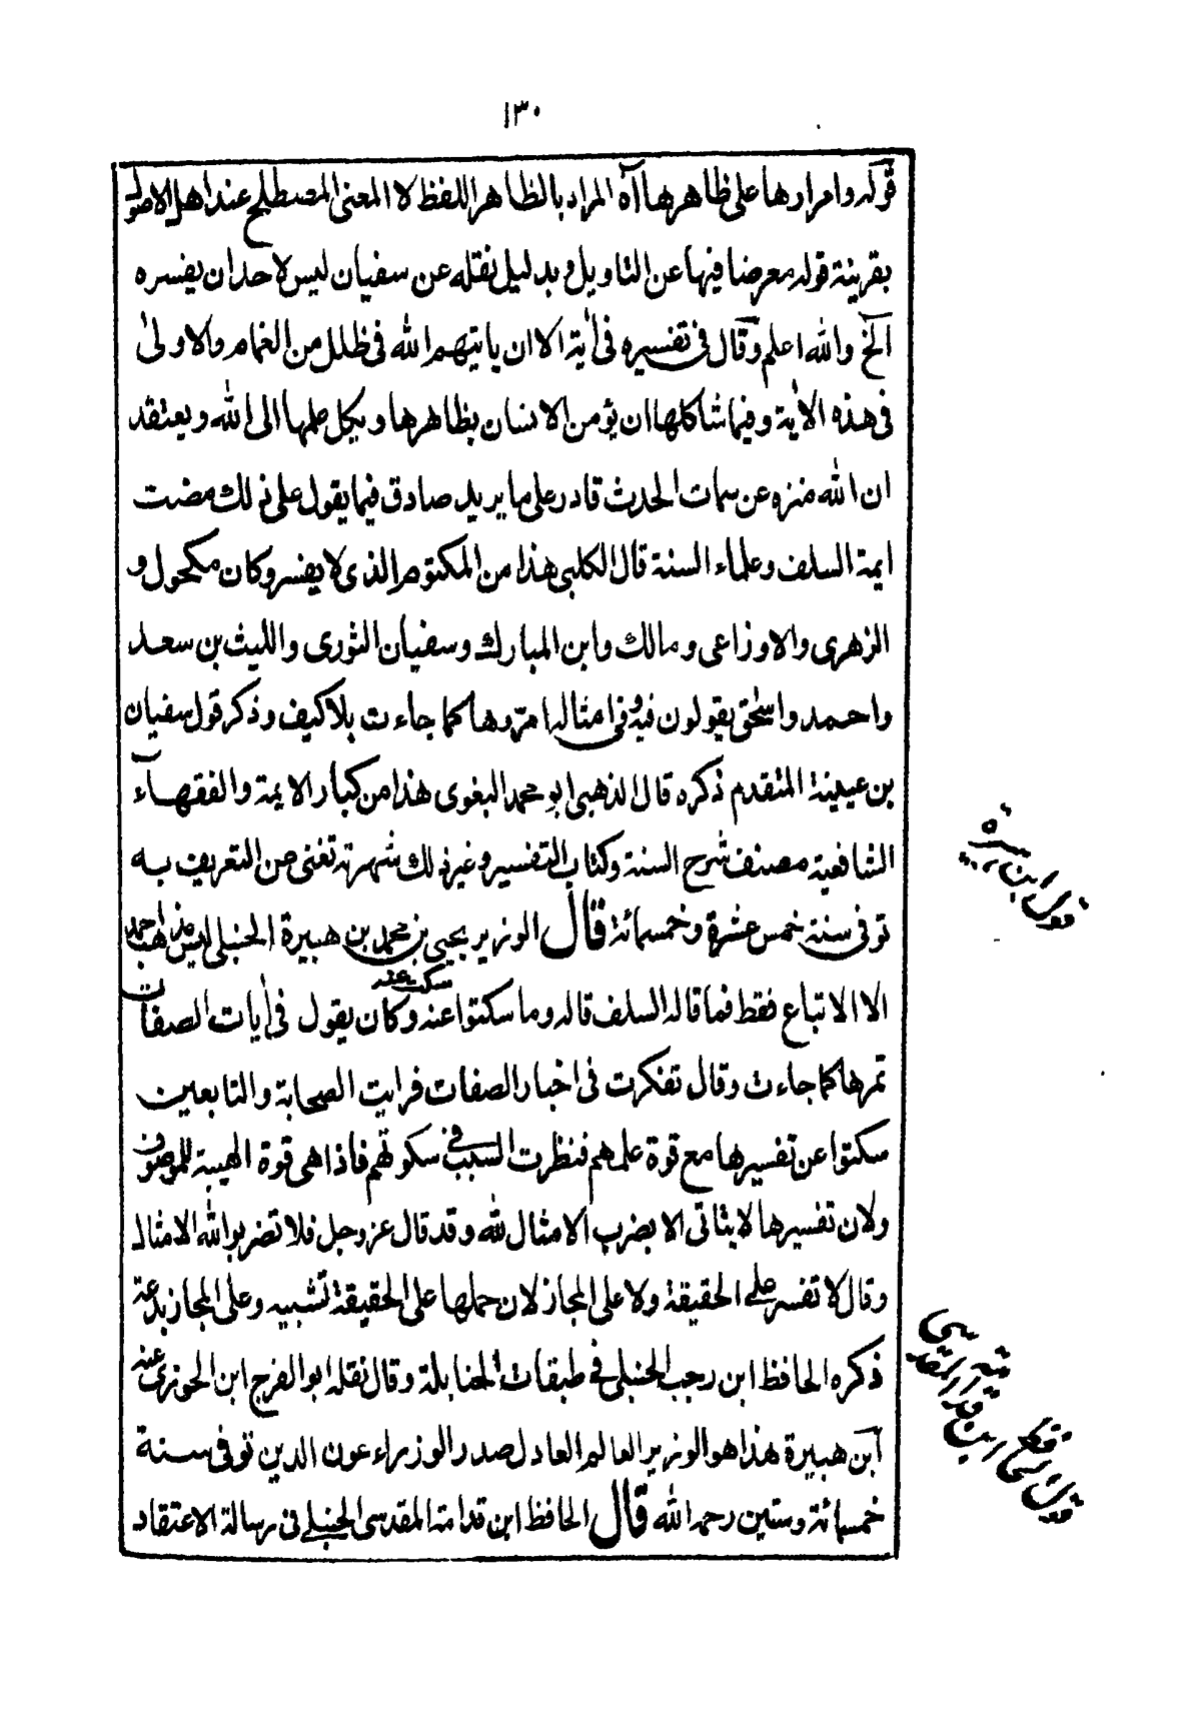 ١٣٠
قوله وامرارها على ظاهرها آه المراد بالظاهر اللفظ لا المعنى المصطلح عند اهل الاصول
بقرينة قوله معرضا فيها عن التاويل وبدليل نقله عن سفيان ليس لاحد ان يفسره
الخ والله اعلم وقال فى تفسيره فى أية الا ان ياتيهم الله فى ظلل من الغمام والاولى
فى هذه الأية وفيما شاكلها ان يؤمن الانسان بظاهرها ويكل علمها الى الله ويعتقد
ان الله منزه عن سمات الحدث قادر على ما يريد صادق فيما يقول على ذلك مضت
ايمة السلف وعلماء السنة قال الكلبى هذا من المكتوم الذى لا يفسر وكان مكحول و
الزهرى والاوزاعى ومالك وابن المبارك وسفيان الثورى والليث بن سعد
واحمد واسحٰق يقولون فيه وفى امثاله امرّوها كما جاءت بلا كيف وذكر قول سفيان
بن عيينة المتقدم ذكره قال الذهبى ابو محمد البغوى هذا من كبار الايمة والفقهاء
الشافعية مصنف شرح السنة وكتاب التفسير وغير ذلك شهرته تغنى عن التعريف به
توفى سنة خمس عشرة وخمسمائة قال الوزير يحيى بن محمد بن هبيرة الحنبلى ليس مذهب احمد
الا الاتباع فقط فما قاله السلف قاله وما سكتوا عنه سكت عنه وكان يقول فى أيات الصفات
تمرها كما جاءت وقال تفكرت فى اخبار الصفات فرايت الصحابة والتابعين
سكتوا عن تفسيرها مع قوة علمهم فنظرت السبب فى سكوتهم فاذا هى قوة الهيبة للموصوف
ولان تفسيرها لا يتاتى الا بضرب الامثال لله وقد قال عز وجل فلا تضربوا لله الامثال
وقال لا تفسر على الحقيقة ولا على المجاز لان حملها على الحقيقة تشبيه وعلى المجاز بدعة
ذكره الحافظ ابن رجب الحنبلى فى طبقات الحنابلة وقال نقله ابو الفرج ابن الجوزى عنه
ابن هبيرة هذا هو الوزير العالم العادل صدر الوزراء عون الدين توفى سنة
خمسمائة وستين رحمه الله قال الحافظ ابن قدامة المقدسى الحنبلى فى رسالة الاعتقاد
قول ابن هبيرة
قول الحافظ ابن قدامة المقدسى